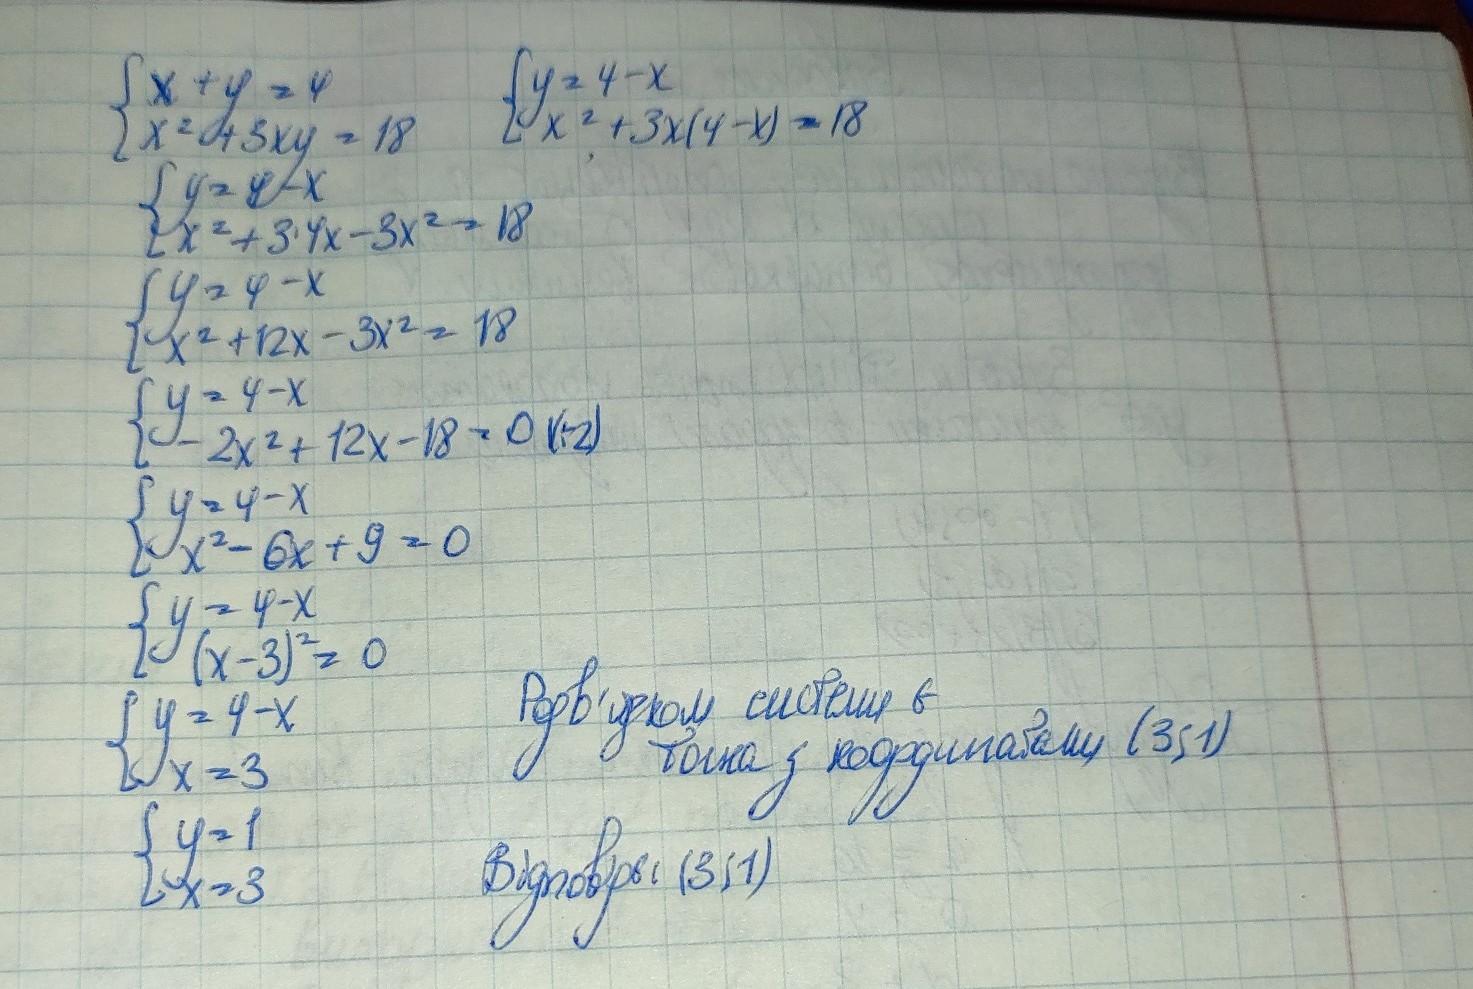 { x + y = 4
x² + 3xy = 18
{ y = 4 - x
x² + 3x(4 - x) = 18
{ y = 4 - x
x² + 3·4x - 3x² = 18
{ y = 4 - x
x² + 12x - 3x² = 18
{ y = 4 - x
- 2x² + 12x - 18 = 0 |(:-2)
{ y = 4 - x
x² - 6x + 9 = 0
{ y = 4 - x
(x - 3)² = 0
{ y = 4 - x
x = 3
{ y = 1
x = 3
Розв'язком системи є
точка з координатами (3;1)
Відповідь: (3;1)